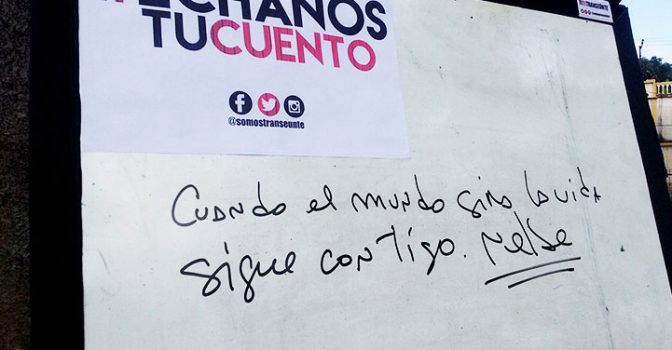 #ÉCHANOS
TUCUENTO
@somostranseunte
Cuando el mundo gira la vida
sigue contigo.